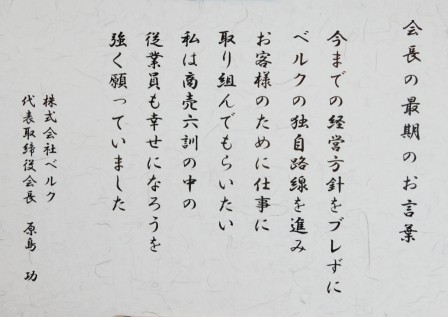 会長の最期のお言葉
今までの経営方針をブレずに
ベルクの独自路線を進み
お客様のために仕事に
取り組んでもらいたい
私は商売六訓の中の
従業員も幸せになろうを
強く願っていました
株式会社ベルク
代表取締役会長 原島 功